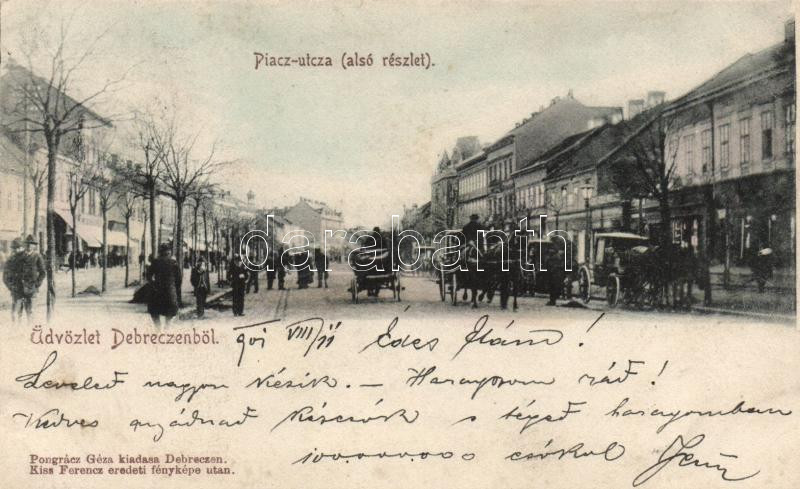 Piacz-utcza (alsó részlet).
darabanth
Üdvözlet Debreczenböl. 901 VIII/11 Édes !
Leveled nagyon késik. — Haragszom rád!
Kedves anyádnak s téged haragomban
100.000.000 csókol Jenő
Pongrácz Géza kiadasa Debreczen.
Kiss Ferencz eredeti fényképe utan.